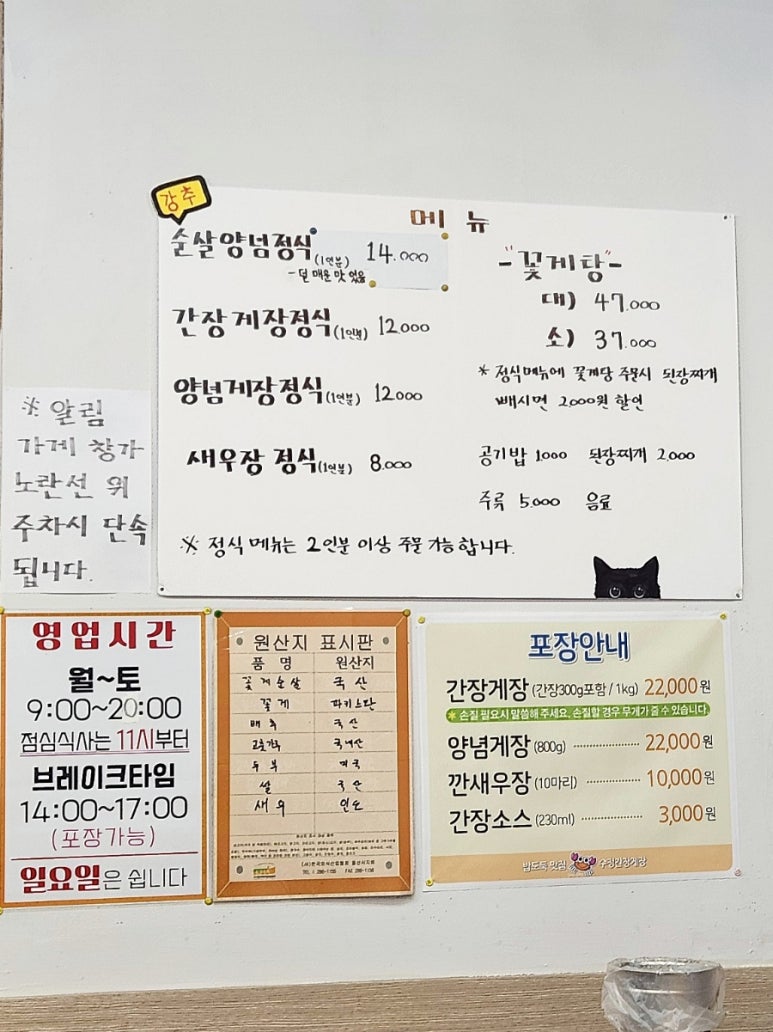 강추
메 뉴
순살양념정식(1인분) 14.000
- 덜 매운 맛 있음
간장게장정식(1인분) 12000
양념게장정식(1인분) 12000
새우장 정식(1인분) 8.000
-"꽃게탕"-
대) 47.000
소) 37.000
* 정식메뉴에 꽃게탕 주문시 된장찌개
빼시면 2,000원 할인
공기밥 1000 된장찌개 2.000
주류 5.000 음료
※ 정식 메뉴는 2인분 이상 주문 가능합니다.
※ 알림
가게 창가
노란선 위
주차시 단속
됩니다.
영업시간
월~토
9:00~20:00
점심식사는 11시부터
브레이크타임
14:00~17:00
(포장가능)
일요일은 쉽니다
원산지 표시판
품 명 원산지
꽃게순살 국산
꽃게 파키스탄
배추 국산
고춧가루 국내산
두부 미국
쌀 국산
새우 인도
포장안내
간장게장(간장300g포함 / 1kg) 22,000원
* 손질 필요시 말씀해 주세요. 손질할 경우 무게가 줄 수 있습니다
양념게장(800g) 22,000원
깐새우장(10마리) 10,000원
간장소스(230ml) 3,000원
밥도둑 맛집 수정간장게장